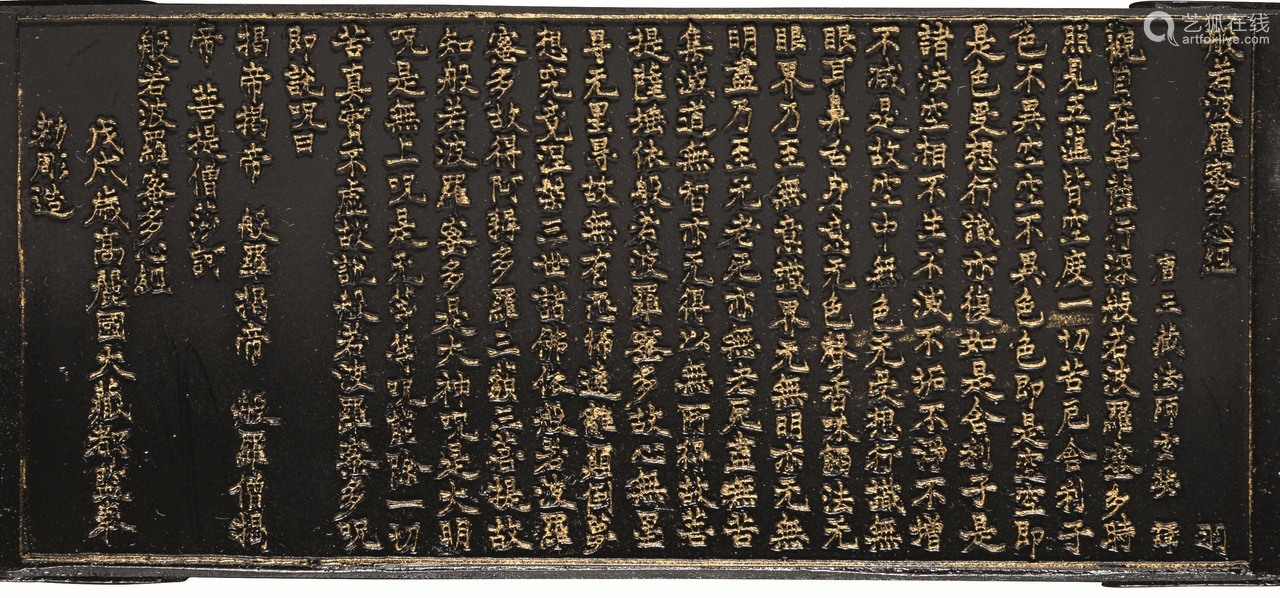 般若波羅蜜多心經 羽
唐三藏法師玄奘 譯
觀自在菩薩行深般若波羅蜜多時
照見五蘊皆空度一切苦厄舍利子
色不異空空不異色色即是空空即
是色受想行識亦復如是舍利子是
諸法空相不生不滅不垢不淨不增
不減是故空中無色无受想行識無
眼耳鼻舌身意无色聲香味觸法无
眼界乃至無意識界无無明亦无無
明盡乃至无老死亦無老死盡無苦
集滅道無智亦无得以無所得故菩
提薩埵依般若波羅蜜多故心無罣
㝵无罣㝵故無有恐怖遠離顛倒夢
想究竟涅槃三世諸佛依般若波羅
蜜多故得阿耨多羅三藐三菩提故
知般若波羅蜜多是大神呪是大明
呪是無上呪是无等等呪能除一切
苦真實不虛故說般若波羅蜜多呪
即說呪曰
揭帝揭帝 般羅揭帝 般羅僧揭
帝 菩提僧莎訶
般若波羅蜜多心經
戊戌歲高麗國大藏都監奉
勅彫造
艺狐在线
artfoxlive.com